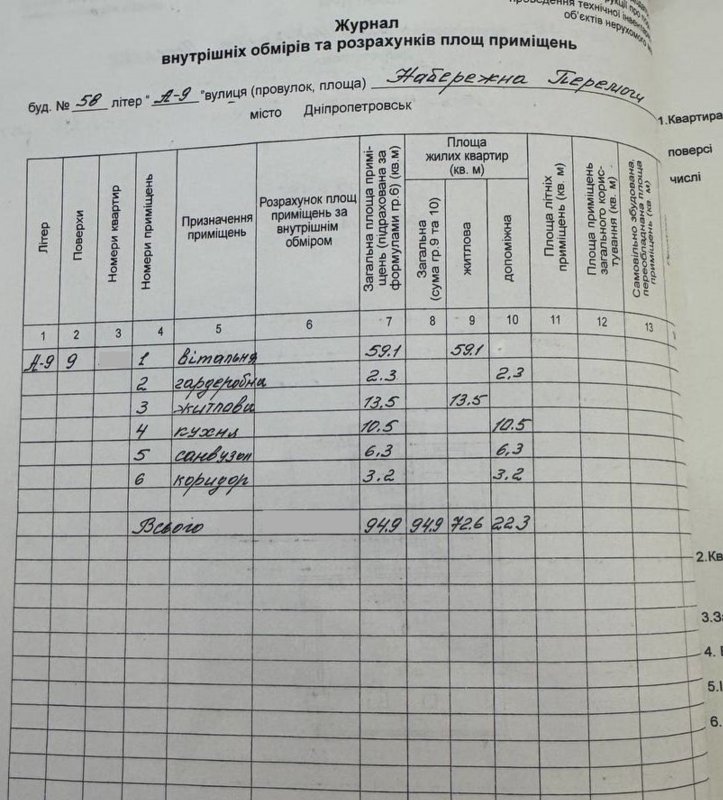 технічної
об'єктів нерухомого
Журнал
внутрішніх обмірів та розрахунків площ приміщень
буд. № 58 літер "А-9" вулиця (провулок, площа) Набережна Перемоги
місто Дніпропетровськ
1.Квартира
поверсі
числі
Літер
Поверхи
Номери квартир
Номери приміщень
Призначення приміщень
Розрахунок площ приміщень за внутрішнім обміром
Загальна площа примі-
щень (підрахована за
формулами гр.6) (кв.м)
Площа
жилих квартир
(кв. м)
Загальна
(сума гр.9 та 10)
житлова
допоміжна
Площа літніх
приміщень (кв. м)
Площа приміщень
загального корис-
тування (кв. м)
Самовільно збудована,
переобладнана площа
приміщень (кв. м)
1 2 3 4 5 6 7 8 9 10 11 12 13
А-9 9 1 вітальня 59.1 59.1
2 гардеробна 2.3 2.3
3 житлова 13.5 13.5
4 кухня 10.5 10.5
5 санвузол 6,3 6,3
6 коридор 3.2 3.2
Всього 94.9 94.9 72.6 22.3
2.Кв
3.З
4.
5.
6.